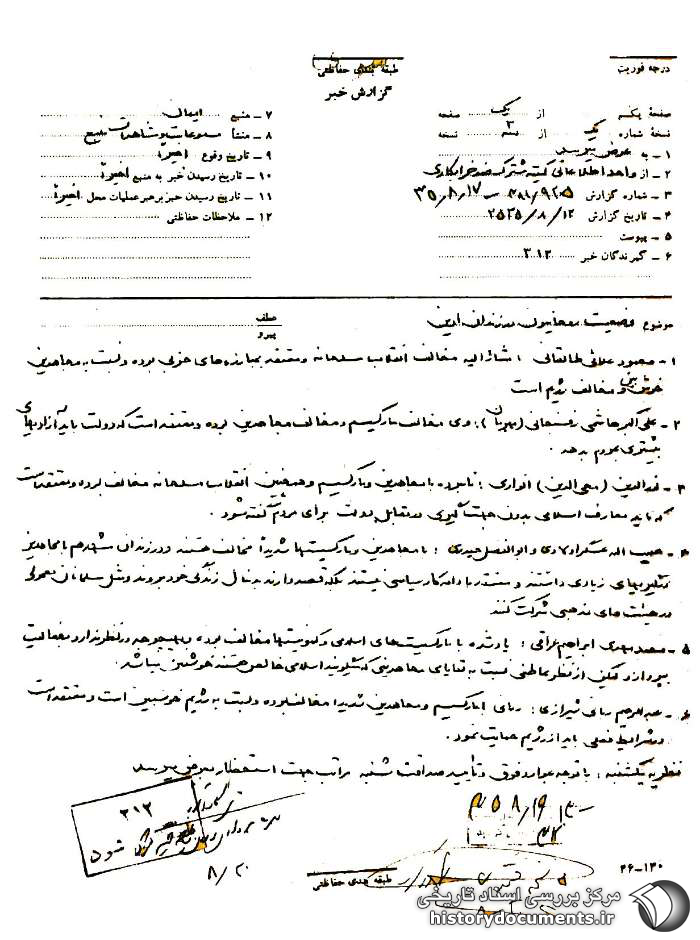 درجه فوریت
طبقه بندی حفاظتی
گزارش خبر
صفحهٔ یکـ از یک صفحه
نسخهٔ شماره یک از ۳ نسخه
۱ ـ به عرض میرسد
۲ ـ از واحد اطلاعاتی کمیته مشترک ضد خرابکاری
۳ ـ شماره گزارش
۳۵/۸/۱۷
۴ ـ تاریخ گزارش ۲۵۳۵/۸/۱۲
۵ ـ پیوست
۶ ـ گیرندگان خبر ۳۱۲
۷ ـ منبع ایمان
۸ ـ منشأ مسموعات و مشاهدات منبع
۹ ـ تاریخ وقوع اخیراً
۱۰ ـ تاریخ رسیدن خبر به منبع اخیراً
۱۱ ـ تاریخ رسیدن خبر برهبر عملیات محل اخیراً
۱۲ ـ ملاحظات حفاظتی
موضوع وضعیت روحانیون در زندان اوین
عطف
پیرو
۱ ـ محمود علائی طالقانی : مشارالیه مخالف انقلاب مسلحانه و معتقد بمبارزه‌های حزبی بوده و نسبت به مجاهدین
خوش بین و مخالف رژیم است
۲ ـ علی اکبر هاشمی رفسنجانی (بهرمان) : وی مخالف مارکسیسم و مخالف مجاهدین بوده و معتقد است که دولت باید آزادیهای
بیشتری بمردم بدهد .
۳ ـ نورالدین (محی الدین) انواری : نامبرده با مجاهدین و مارکسیسم و همچنین انقلاب مسلحانه مخالف بوده و معتقد است
که باید معارف اسلامی بدون جهت گیری در مقابل دولت برای مردم گفته شود .
۴ ـ حبیب اله عسکراولادی و ابوالفضل حیدری : با مجاهدین و مارکسیستها شدیداً مخالف هستند و در زندان مشهد هم با مجاهدین
درگیریهای زیادی داشتند و معتقد بادامه کار سیاسی نیستند بلکه قصد دارند بدنبال زندگی خود بروند و مثل مسلمانان معمولی
در هیئت های مذهبی شرکت کنند
۵ ـ محمد مهدی ابراهیم عراقی : یاد شده با مارکسیست‌های اسلامی و کمونیستها مخالف بوده و بهیچوجه در نظر ندارد بفعالیت
بپردازد و لیکن از نظر عاطفی نسبت به بقایای مجاهدینی که میگویند اسلامی خالص هستند خوشبین میباشد .
۶ ـ عبدالرحیم ربانی شیرازی : ربانی با مارکسیسم و مجاهدین شدیداً مخالف بوده و نسبت به رژیم خوشبین است و معتقد است
در شرایط فعلی باید از رژیم حمایت نمود .
نظریه یکشنبه : با توجه بموارد فوق و تأیید صداقت شنبه مراتب جهت استحضار بعرض میرسد
۳۱۲
شود
۸/۲۰
۳۵/۸/۱۹
طبقه بندی حفاظتی
۲۶-۱۳۰
مرکز بررسی اسناد تاریخی
historydocuments.ir